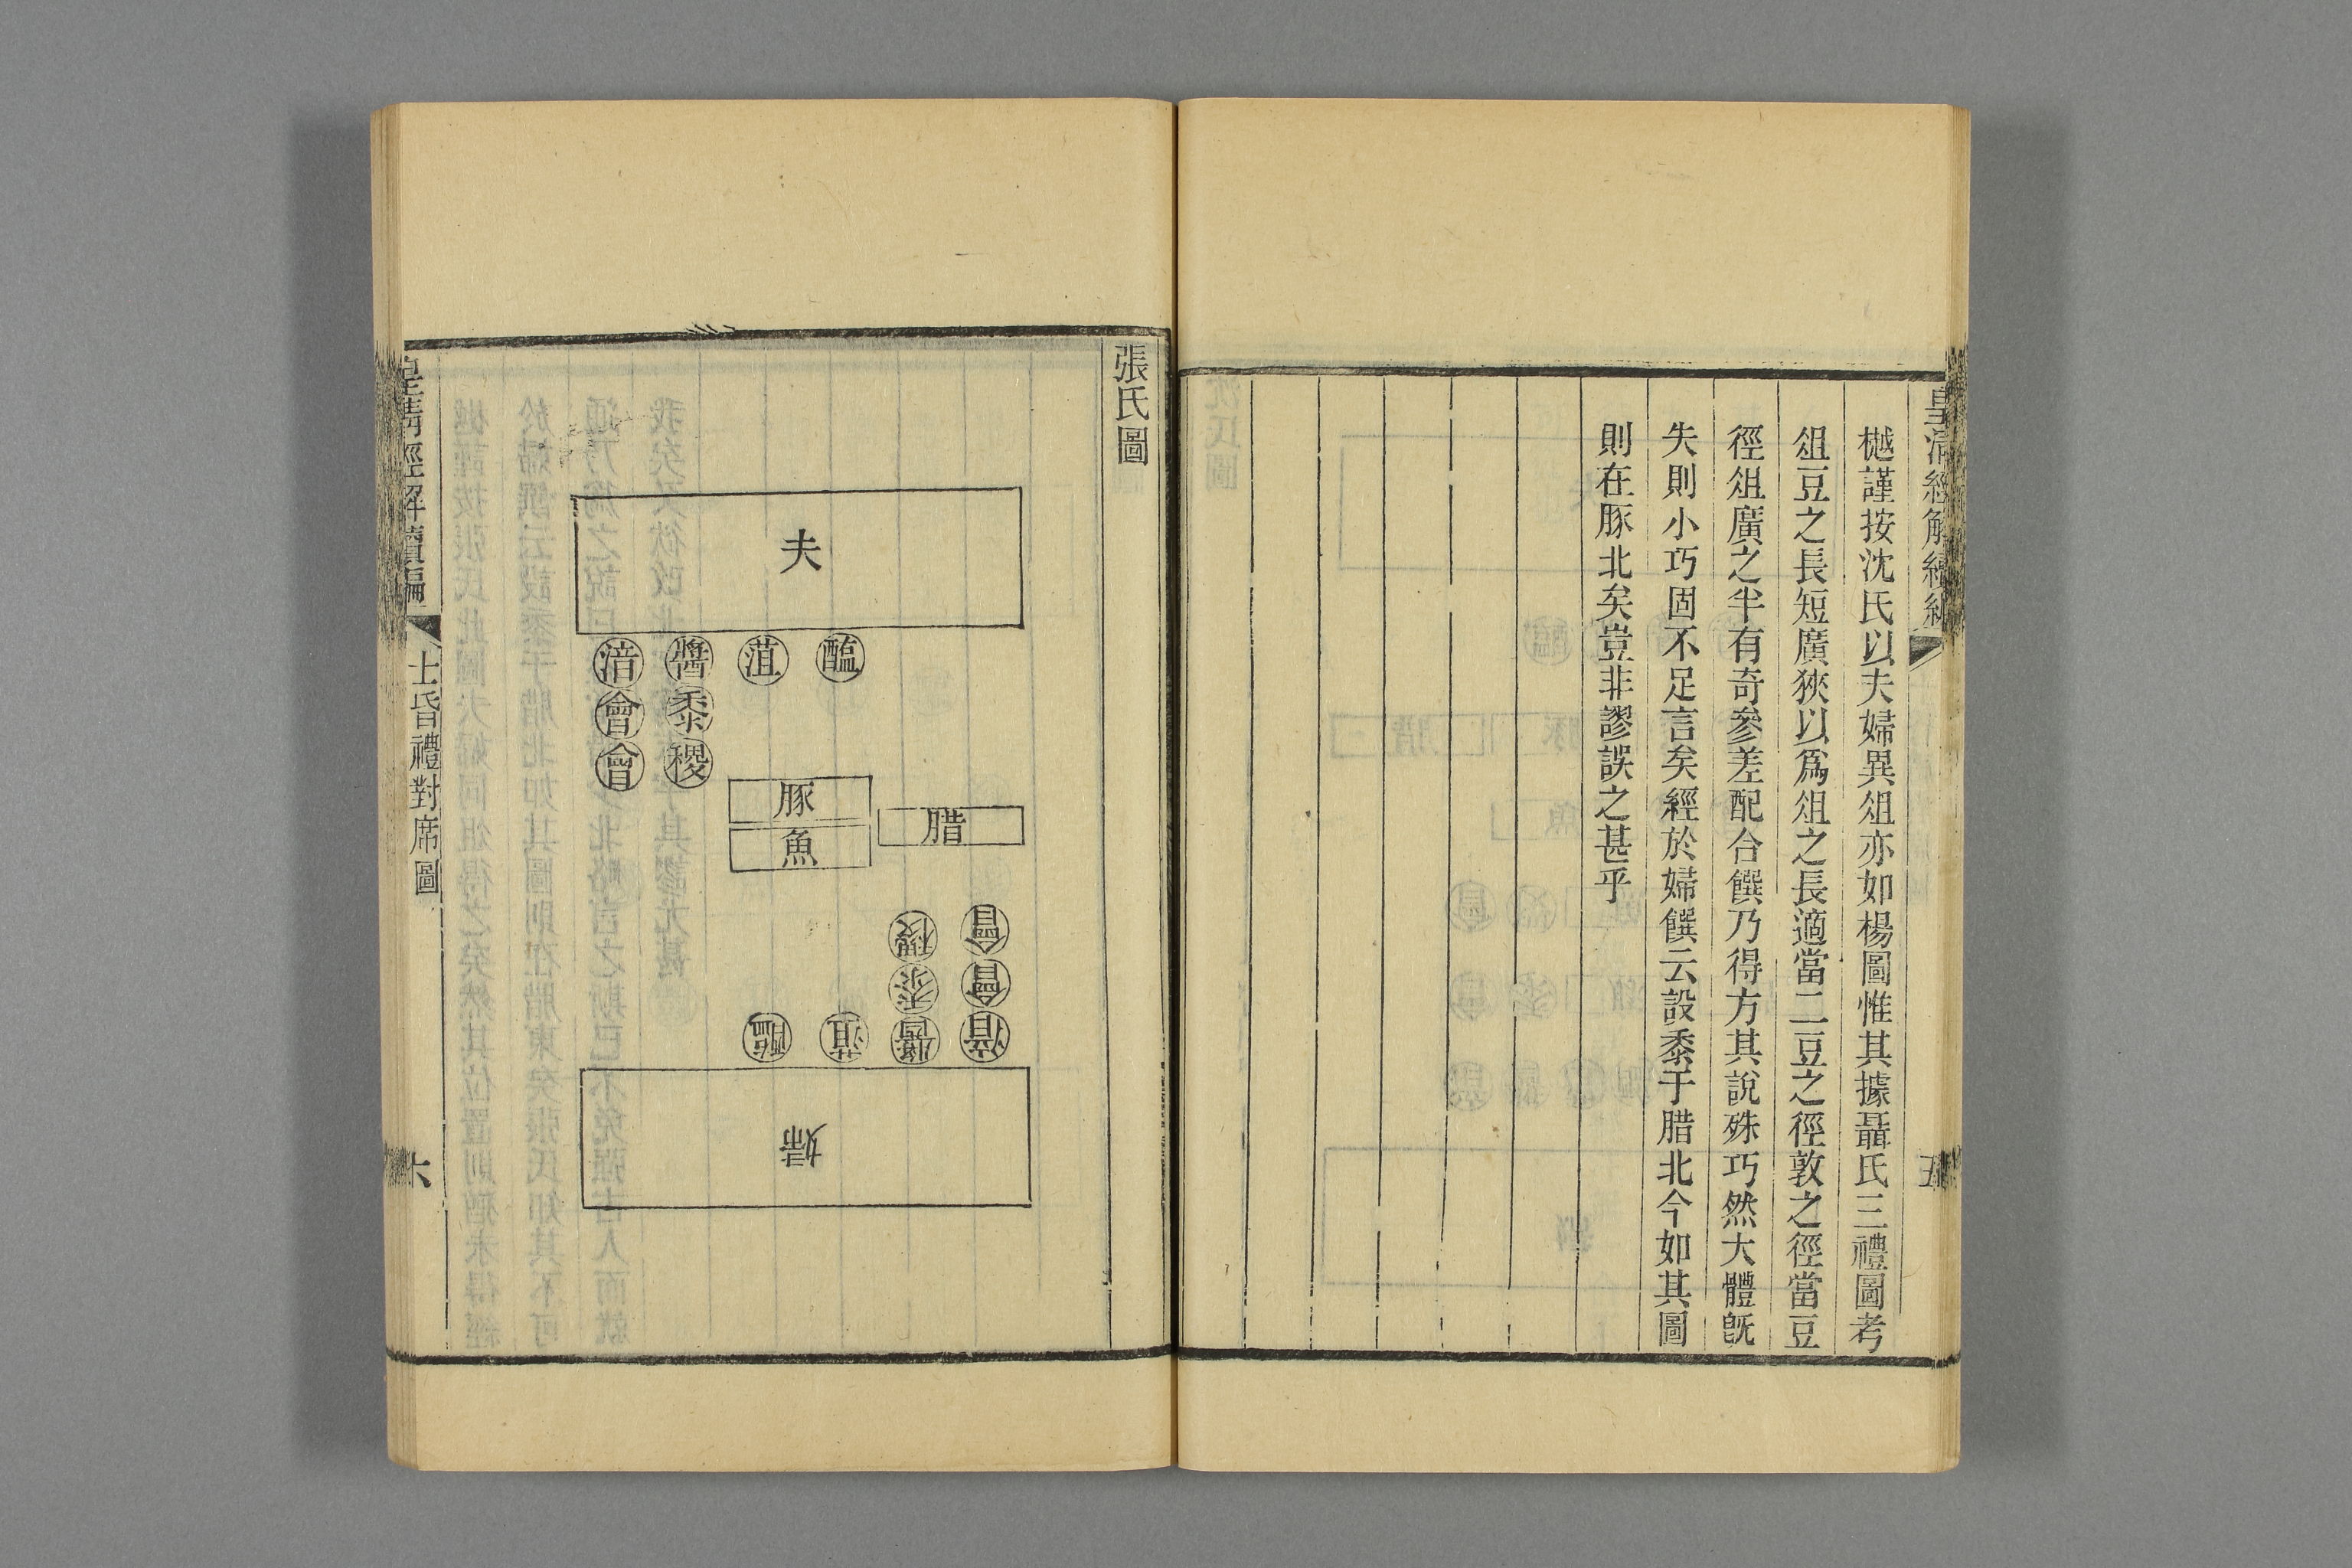 皇清經解續編
五
樾謹按沈氏以夫婦異俎亦如楊圖惟其據聶氏三禮圖考
俎豆之長短廣狹以爲俎之長適當二豆之徑敦之徑當豆
徑俎廣之半有奇參差配合饌乃得方其說殊巧然大體旣
失則小巧固不足言矣經於婦饌云設黍于腊北今如其圖
則在豚北矣豈非謬誤之甚乎
張氏圖
夫
醢
菹
醬
湆
黍
會
稷
會
豚
魚
腊
會
稷
會
黍
湆
醬
菹
醢
婦
皇清經解續編
士昏禮對席圖
六